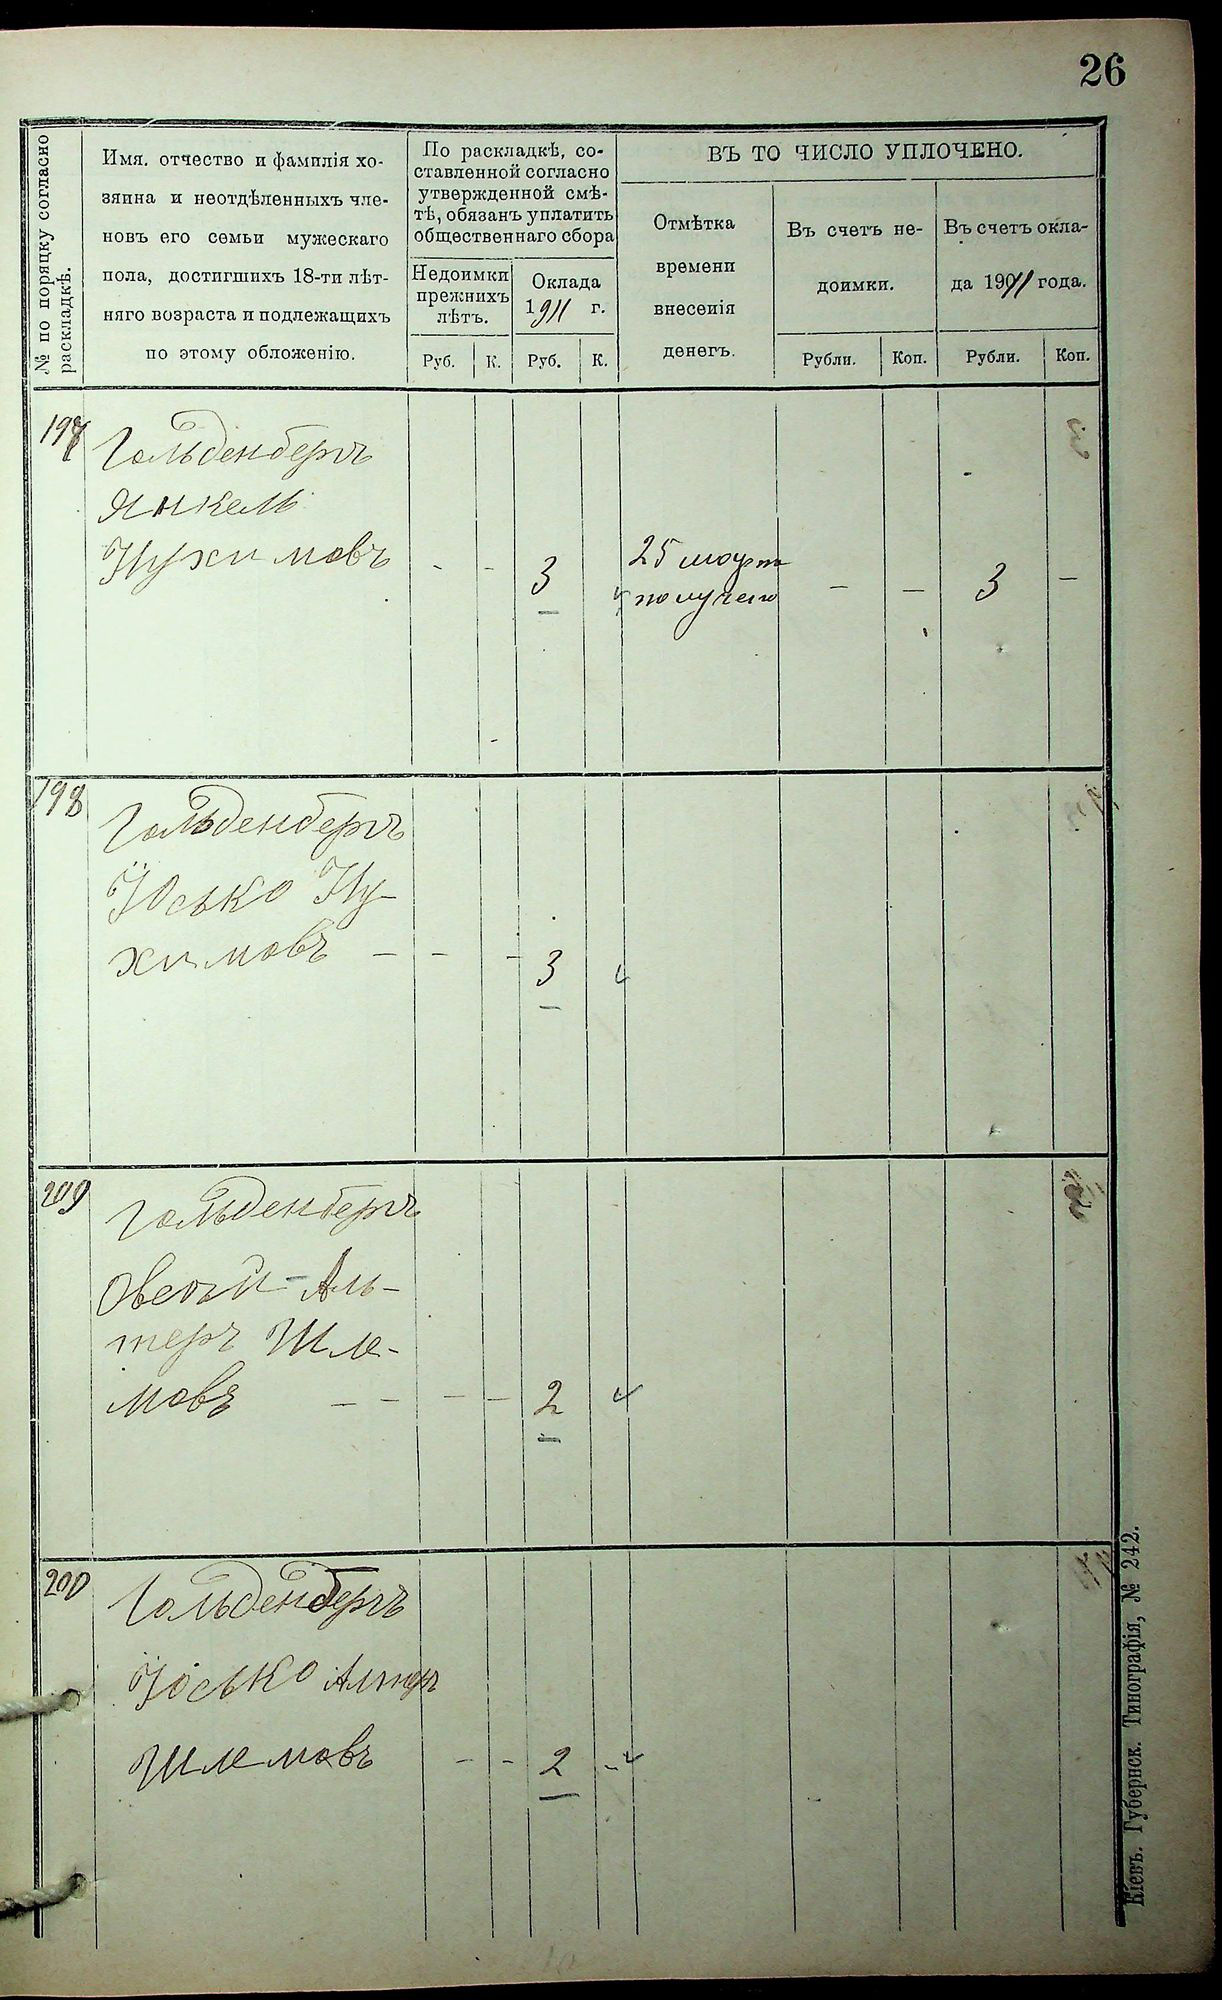 26
№ по поряцку согласно
раскладкѣ.
Имя. отчество и фамилія хо-
зяина и неотдѣленныхъ чле-
новъ его семьи мужескаго
пола, достигшихъ 18-ти лѣт-
няго возраста и подлежащихъ
по этому обложенію.
По раскладкѣ, со-
ставленной согласно
утвержденной смѣ-
тѣ, обязанъ уплатить
общественнаго сбора
Недоимки
прежнихъ
лѣтъ.
Оклада
1911 г.
Руб. К. Руб. К.
ВЪ ТО ЧИСЛО УПЛОЧЕНО.
Отмѣтка
времени
внесенія
денегъ.
Въ счетъ не-
доимки.
Въ счетъ окла-
да 1911 года.
Рубли. Коп. Рубли. Коп.
197
Гольденбергъ
Янкель
Нухимовъ - - 3
25 марта
получено
— — 3 —
198
Гольденбергъ
Йосько Ну-
химовъ — - - 3
209
Гольденбергъ
Овсей - Аль-
теръ Шле-
мовъ — — — — 2
200
Гольденбергъ
Йосько Альтеръ
Шлемовъ — - 2 -
Кіевъ. Губернск. Типографія, № 242.